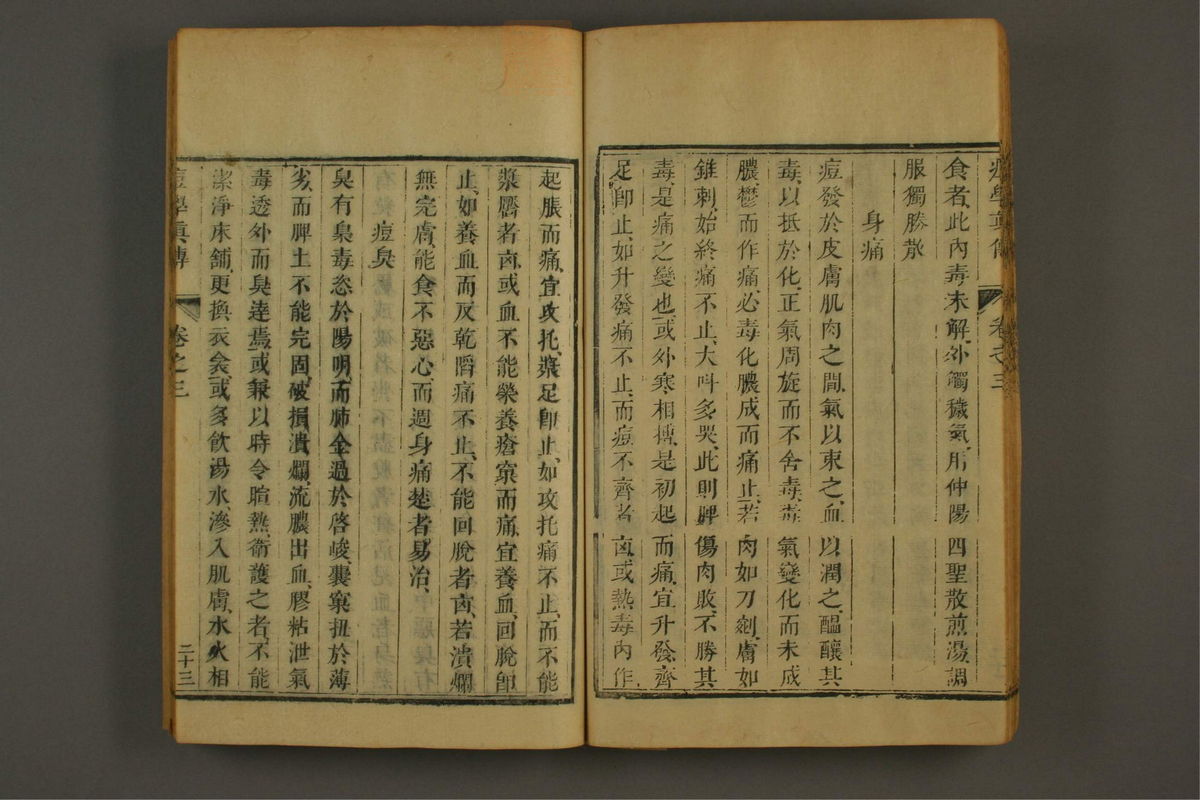 痘學真傳 卷之三
食者、此內毒未解、外觸穢氣、用仲陽四聖散煎湯調
服獨勝散
身痛
痘發於皮膚肌肉之間、氣以束之、血以潤之、醞釀其
毒、以抵於化、正氣周旋而不舍毒、毒氣變化而未成
膿、鬱而作痛、必毒化膿成而痛止、若肉如刀剜、膚如
錐刺、始終痛不止、大呌多哭、此則脾傷肉敗、不勝其
毒、是痛之變也、或外寒相搏、是初起而痛、宜升發、齊
足卽止、如升發痛不止、而痘不齊者凶、或熱毒內作、
起脹而痛、宜攻托、漿足卽止、如攻托痛不止、而不能
漿膿者凶、或血不能榮養瘡窠而痛、宜養血、回脫卽
止、如養血而反乾膶、痛不止、不能回脫者凶、若潰爛
無完膚、能食不惡心、而週身痛楚者易治、
痘臭
臭有梟毒恣於陽明、而肺金過於啓峻、囊窠扭於薄
劣、而脾土不能完固、破損潰爛、流膿出血、膠粘泄氣、
毒透外而臭達焉、或兼以時令暄熱、衞護之者、不能
潔淨床鋪、更換衣衾、或多飲湯水、滲入肌膚、水火相
痘學真傳 卷之三 二十三